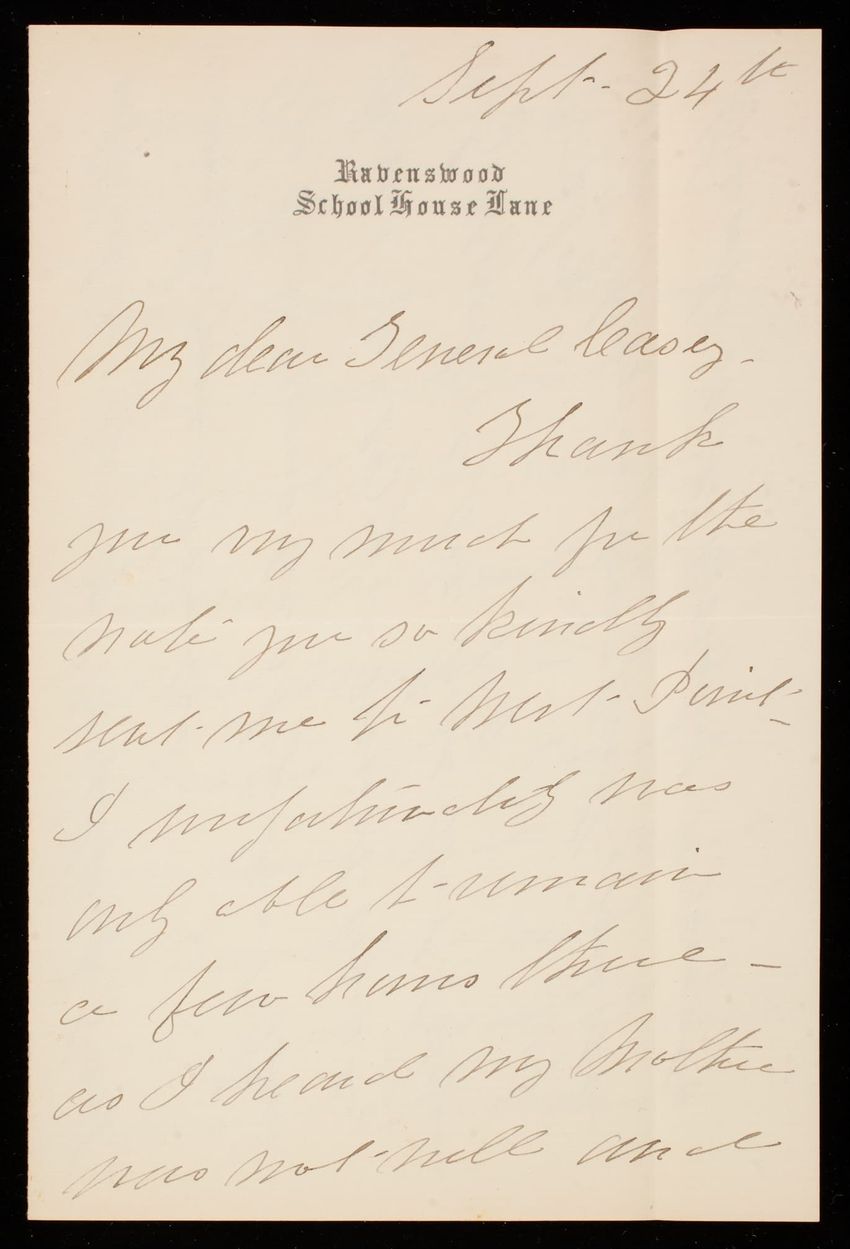 Sept- 24th
Ravenswood
School House Lane
My dear General Casey-
Thank
you very much for the
note you so kindly
sent me to West Point-
I unfortunately was
only able to remain
a few hours there -
as I heard my Mother
was not well and